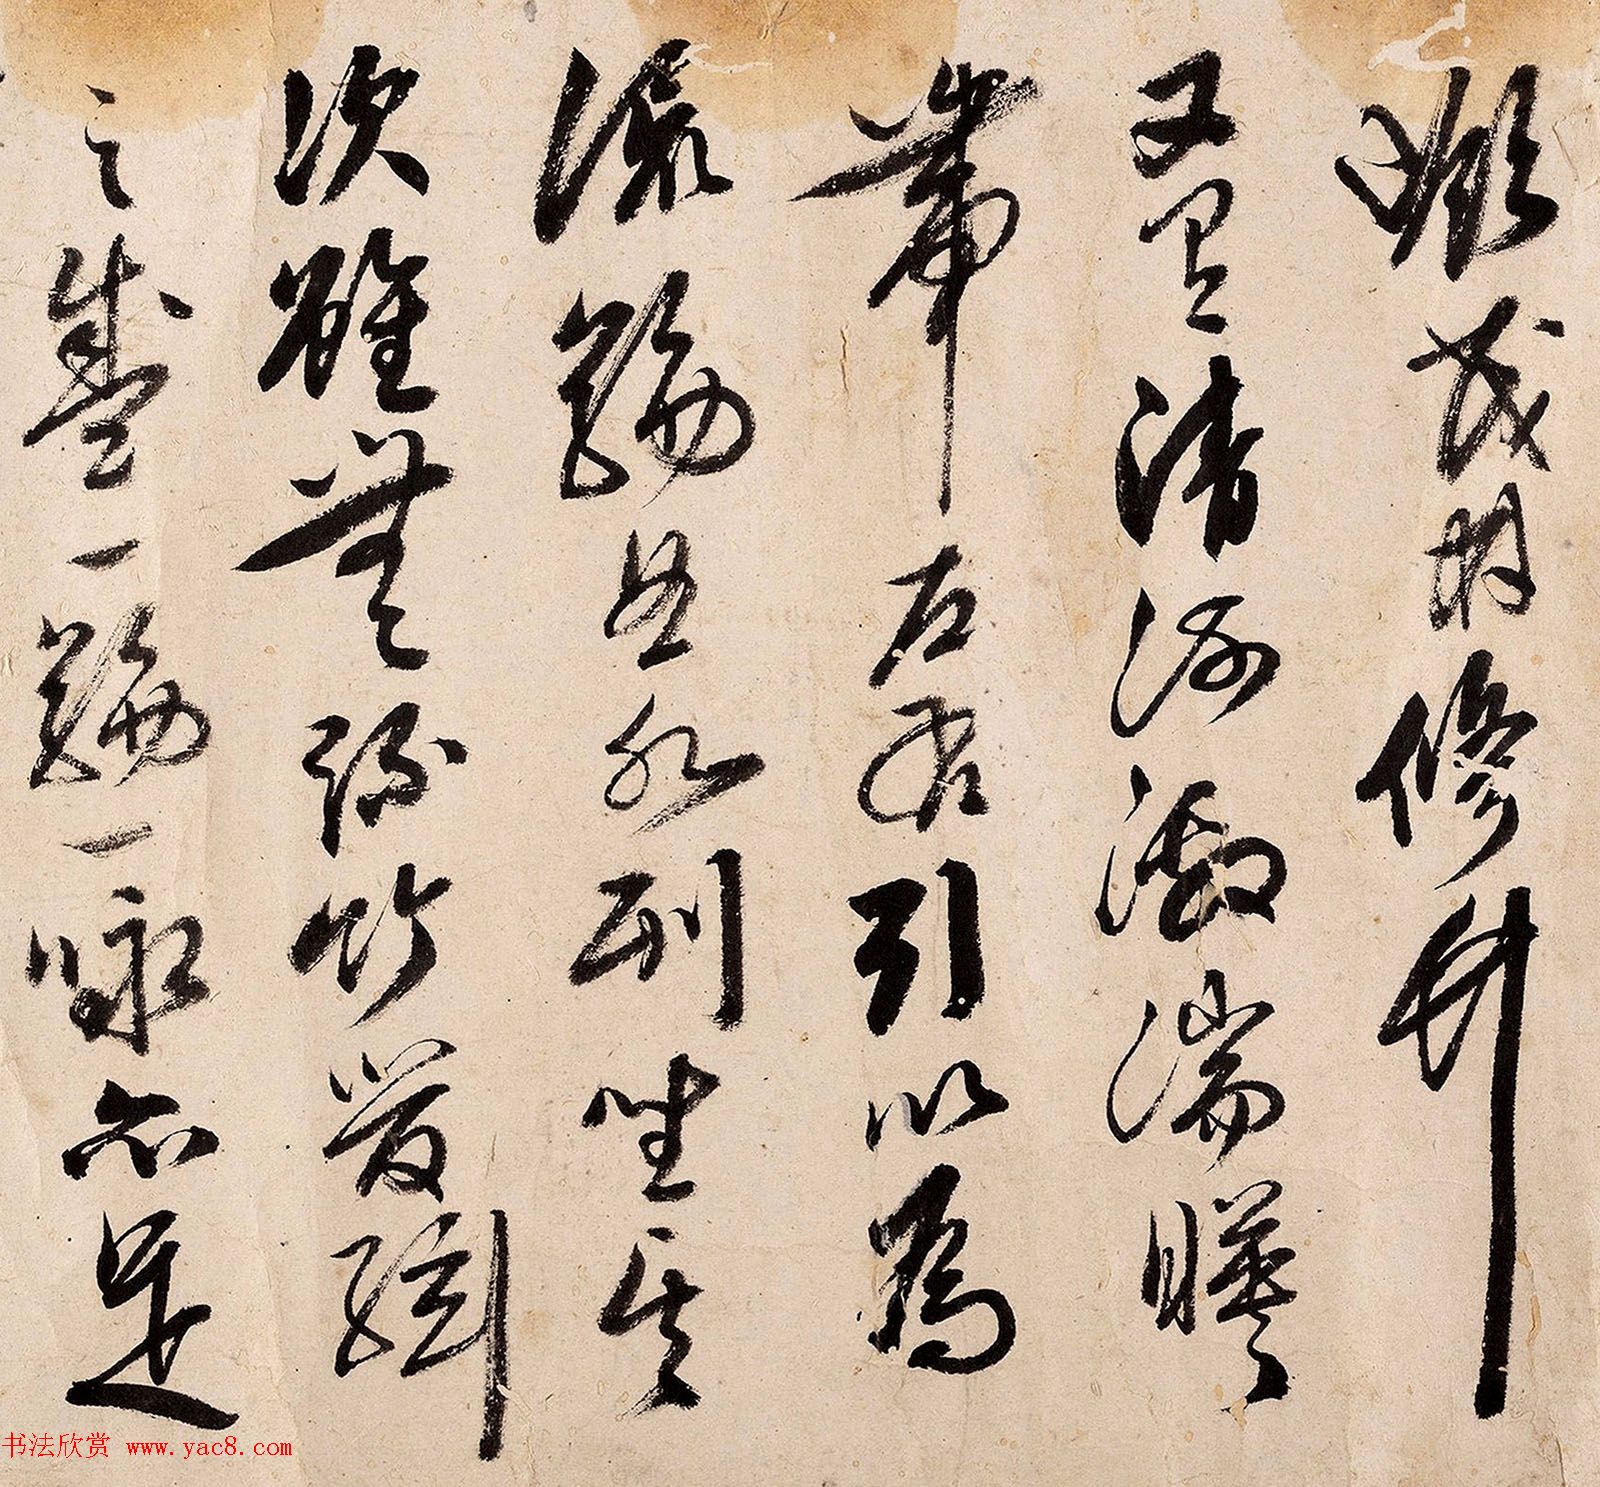 嶺茂林修竹
又有清流激湍暎
帶左右引以為
流觴曲水列坐其
次雖無絲竹管絃
之盛一觴一詠亦足
书法欣赏 www.yac8.com